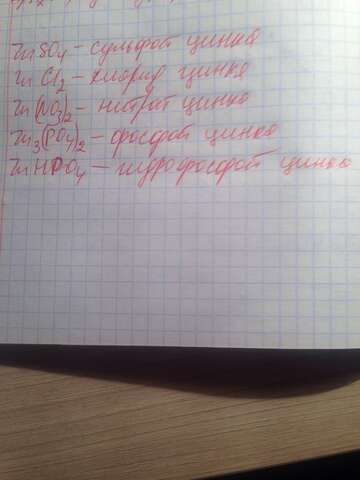 ZnSO4 - сульфат цинка
ZnCl2 - хлорид цинка
Zn(NO3)2 - нитрат цинка
Zn3(PO4)2 - фосфат цинка
ZnHPO4 - гидрофосфат цинка